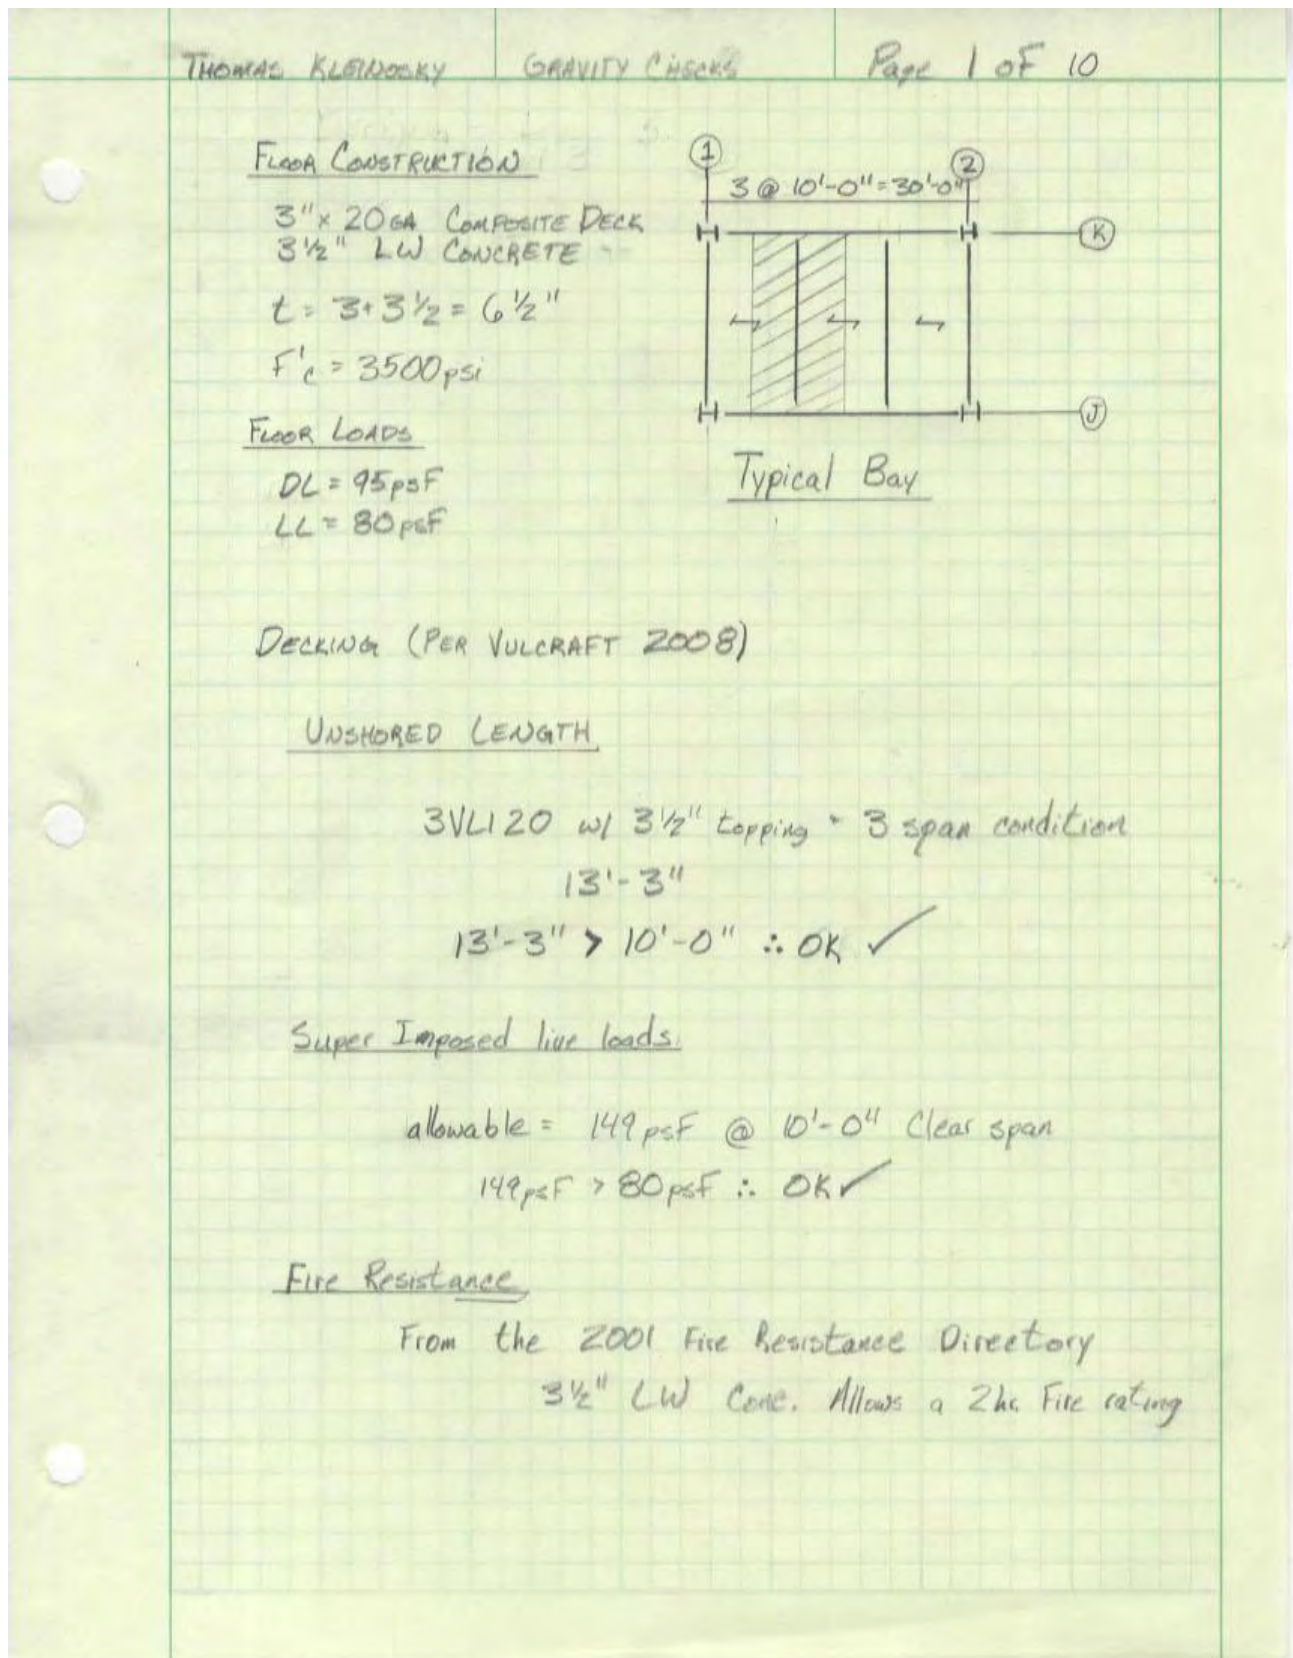 THOMAS KLEINOSKY GRAVITY CHECKS Page 1 of 10
FLOOR CONSTRUCTION
3" x 20GA COMPOSITE DECK
3½" LW CONCRETE
t = 3+3½ = 6½"
F'c = 3500psi
FLOOR LOADS
DL = 95psF
LL = 80psF
1
2
3 @ 10'-0" = 30'-0"
K
J
Typical Bay
DECKING (PER VULCRAFT 2008)
UNSHORED LENGTH
3VLI20 w/ 3½" topping - 3 span condition
13'-3"
13'-3" > 10'-0" ∴ OK ✓
Super Imposed live loads.
allowable = 149psF @ 10'-0" Clear span
149psF > 80psF ∴ OK ✓
Fire Resistance
From the 2001 Fire Resistance Directory
3½" LW Conc. Allows a 2hr Fire rating